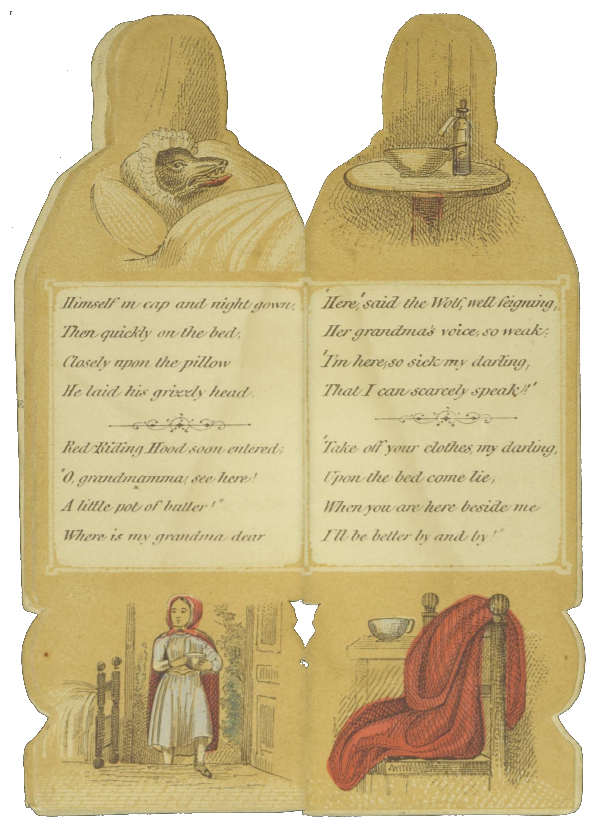 Himself in cap and night gown,
Then quickly on the bed,
Closely upon the pillow
He laid his grizzly head.
Red Riding Hood soon entered;
'O, grandmamma, see here!
A little pot of butter!"
Where is my grandma dear
'Here,' said the Wolf, well feigning,
Her grandma's voice, so weak;
'I'm here, so sick my darling,
That I can scarcely speak!'
'Take off your clothes, my darling,
Upon the bed come lie;
When you are here beside me
I'll be better by and by!"